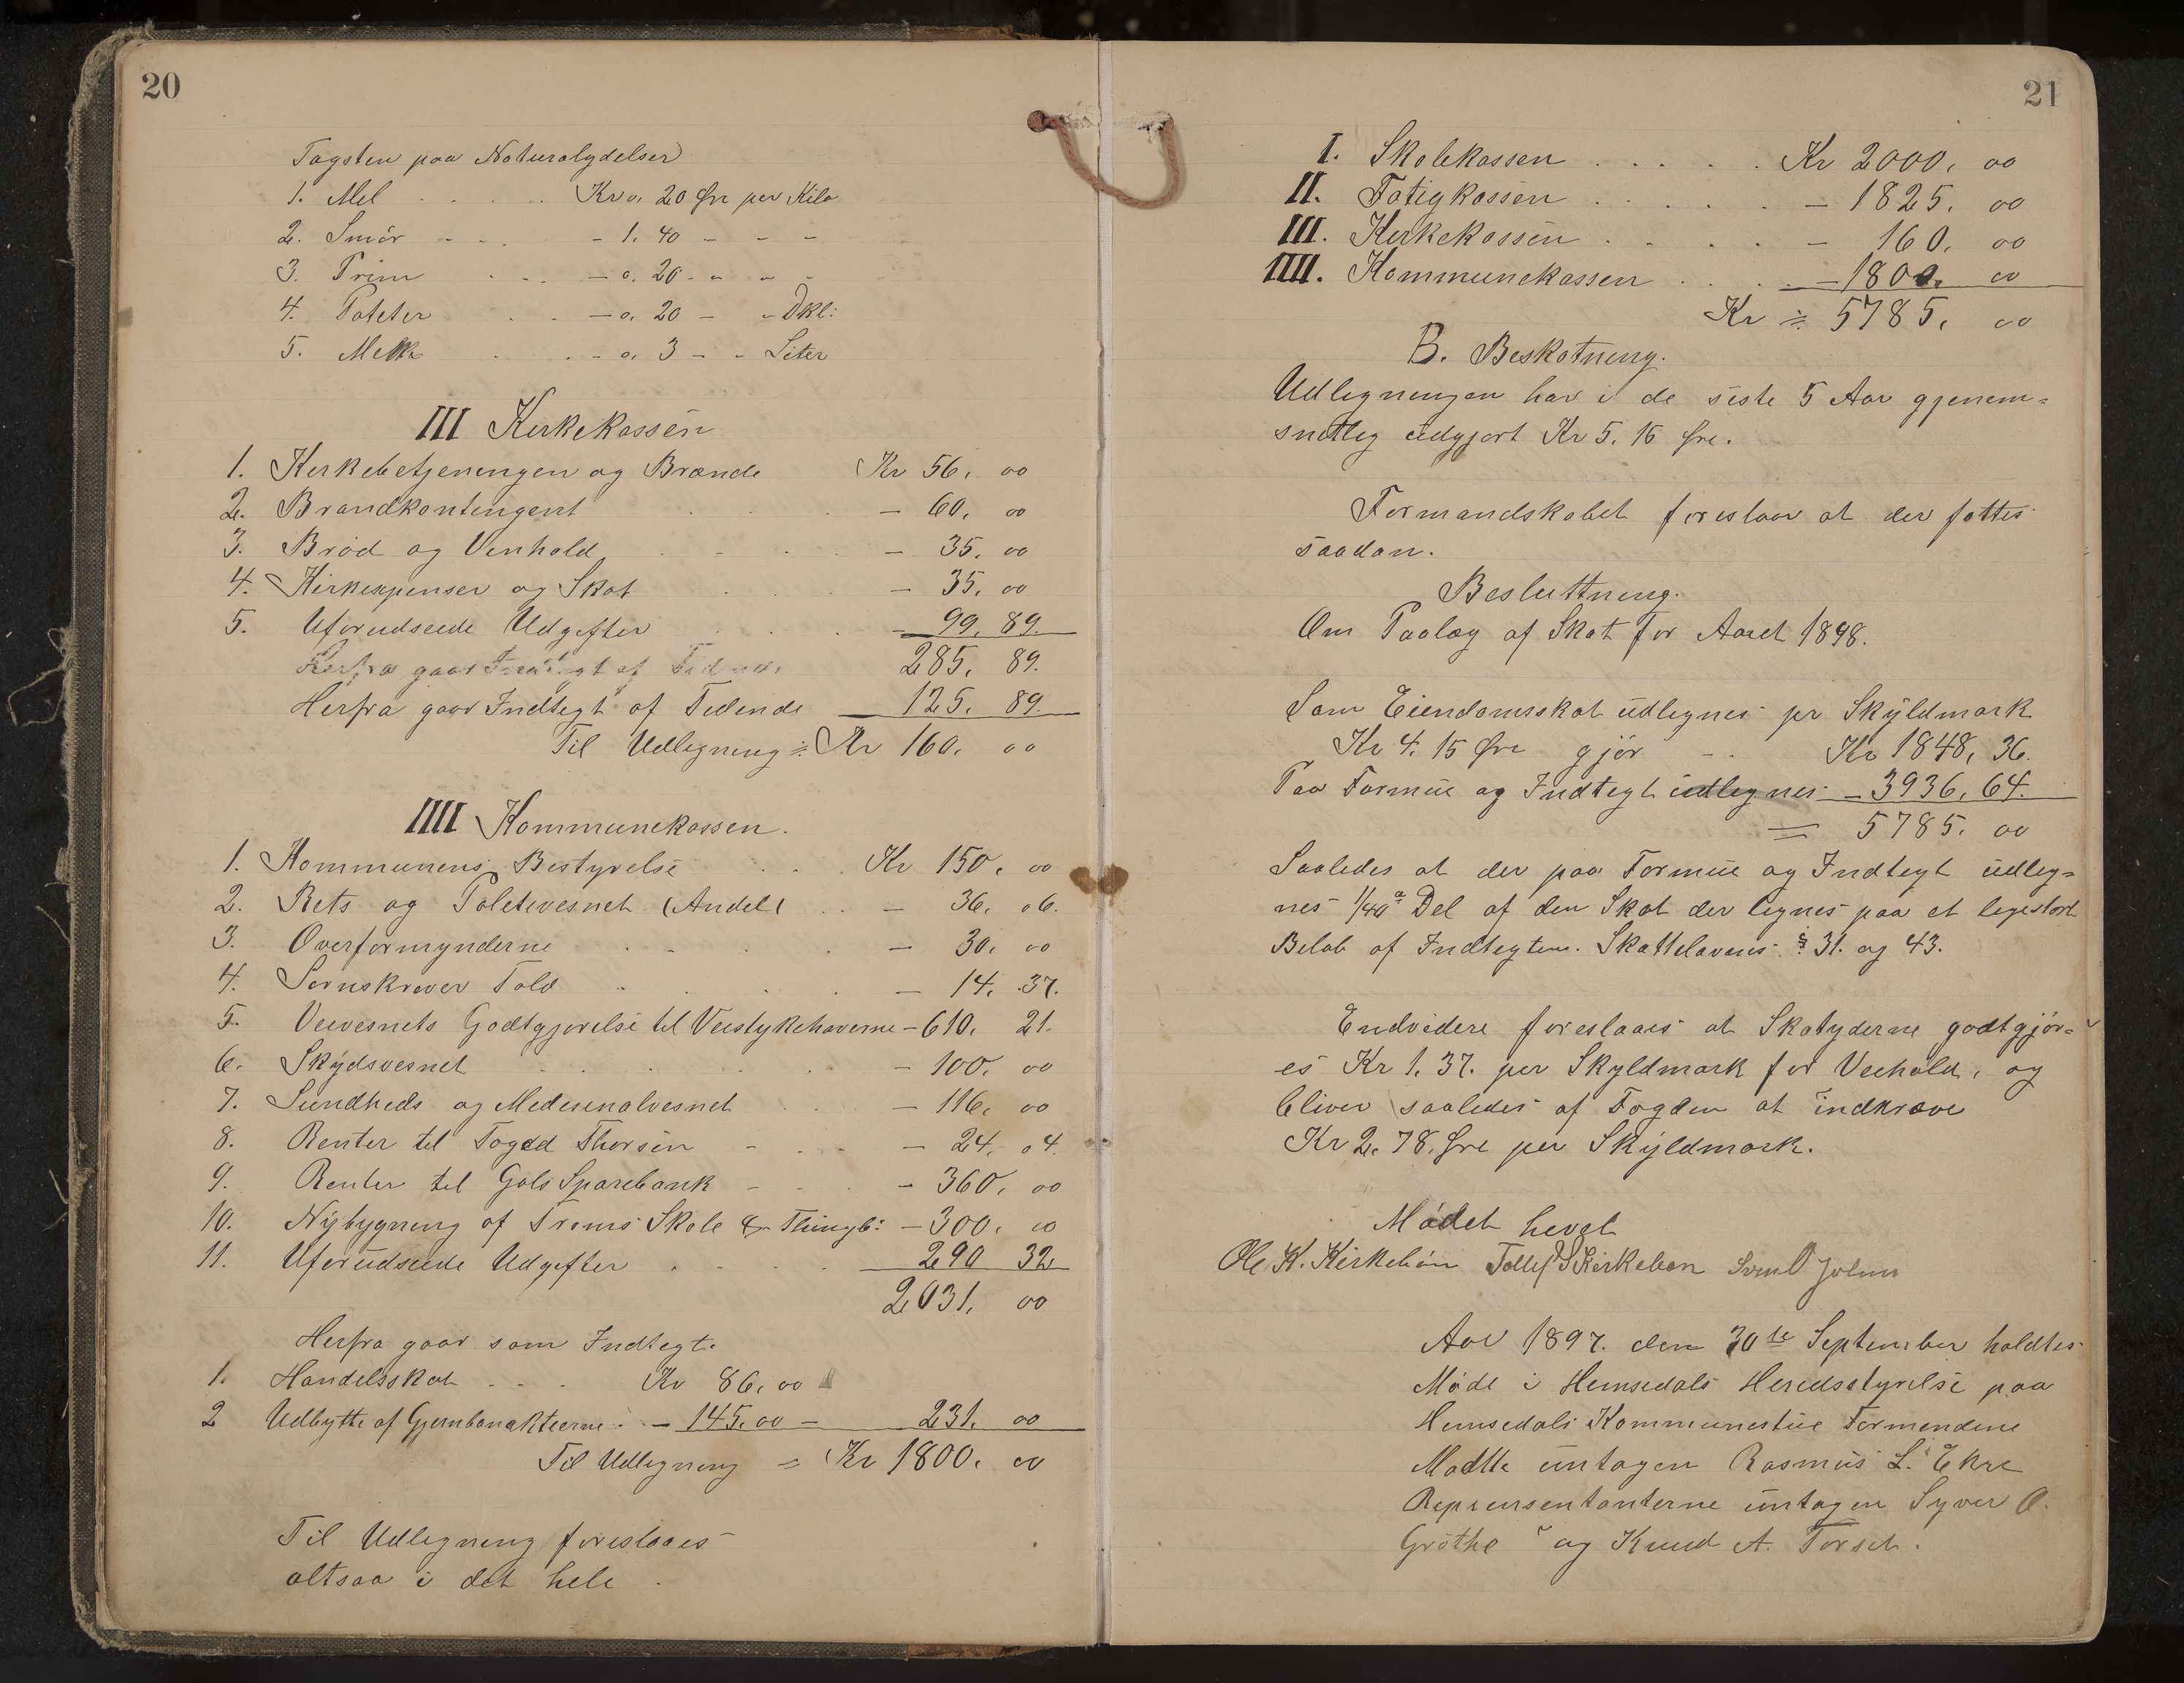 20
Tagsten paa Naturalydelser
1. Mel . . . . . Kr 0. 20 Øre per Kilo
2. Smör - - . - 1. 40 - - -
3. Prim . . . - 0. 20 - - -
4. Poteter . . - 0. 20 - - Dkl:
5. Melk . . - 0. 3 - - Liter
III Kirkekassen
1. Kirkebetjeningen og Brænde Kr 56. 00
2. Brandkontingent . . . - 60. 00
3. Bröd og Vinhold . . . - 35. 00
4. Kirkexpenser og Skat . . . - 35. 00
5. Uforudseede Udgifter . . . - 99. 89.
Herfra gaar Indtegt af 285. 89.
Herfra gaar Indtegt af Tiende 125. 89.
Til Udligning = Kr 160. 00
IIII Kommunekassen.
1. Kommunens Bestyrelse . . . Kr 150. 00
2. Rets og Poletivesnet (Andel( . . - 36. 06.
3. Overformynderne . . . . - 30. 00
4. Told . . . . - 14. 37.
5. Veivesnets Godtgjørelse til Veistykehaverne - 610. 21.
6. Skydsvesnet . . . . . - 100. 00
7. Sundheds og Medesinalvesnet . . - 116. 00
8. Renter til Fogdd Thorsen - . . - 24. 04.
9. Renter til Gols Sparebank - - . - 360. 00
10. Nybygning af Troms Skole & Thinglb: - 300. 00
11. Uforudseede Udgifter . . . . 290 32
2031. 00
Herfra gaar som Indtegt.
1. Handelsskat - - - Kr 86. 00
2 Udbytte af Gjernbanakteerne . - 145. 00 - 231. 00
Til Udligning = Kr 1800. 00
Til Udligning foreslaaes
altsaa i det hele .
21
I. Skolekassen . . . . . Kr 2000. 00
II. Fatigkassen . . . . . - 1825. 00
III. Kirkekassen . . . . - 160. 00
IIII. Kommunekassen . . . . - 1800. 00
Kr = 5785. 00
B. Beskatning.
Udligningen har i de siste 5 Aar gjenem=
snitlig udgjort Kr 5. 16 Øre.
Formandskabet foreslaar at der fattes
saadan.
Besluttning.
Om Paalæg af Skat for Aaret 1898.
Som Eiendomsskat udlignes pr Skyldmark
Kr 4. 15 Øre gjör - - Kr 1848, 36.
Paa Formue og Indtegt udlignes - 3936, 64.
= 5785. 00
Saaledes at der paa Formue og Indtegt udlig=
nes 1/40 Del af den Skat der lignes paa et ligestort
Belöb af Indtegten. Skattelovens § 31. og 43.
Endvidere foreslaaes at Skatyderne godtgjör=
es Kr 1. 37. per Skyldmark for Veihold, og
bliver saaledes af Fogden at indkræve
Kr 2. 78. Øre per Skyldmark.
Mödet hevet
Ole K. Kirkebön Tollef S Kirkeböen Svend Jolmer
Aar 1897. den 30te September holdtes
Möde i Hemsedals Heredsstyrelse paa
Hemsedals Kommunestue Formendene
Mödtte untagen Rasmus L. Ekre
Repreursentanterne untagen Syver O.
Gröthe og Knud A. Torset.